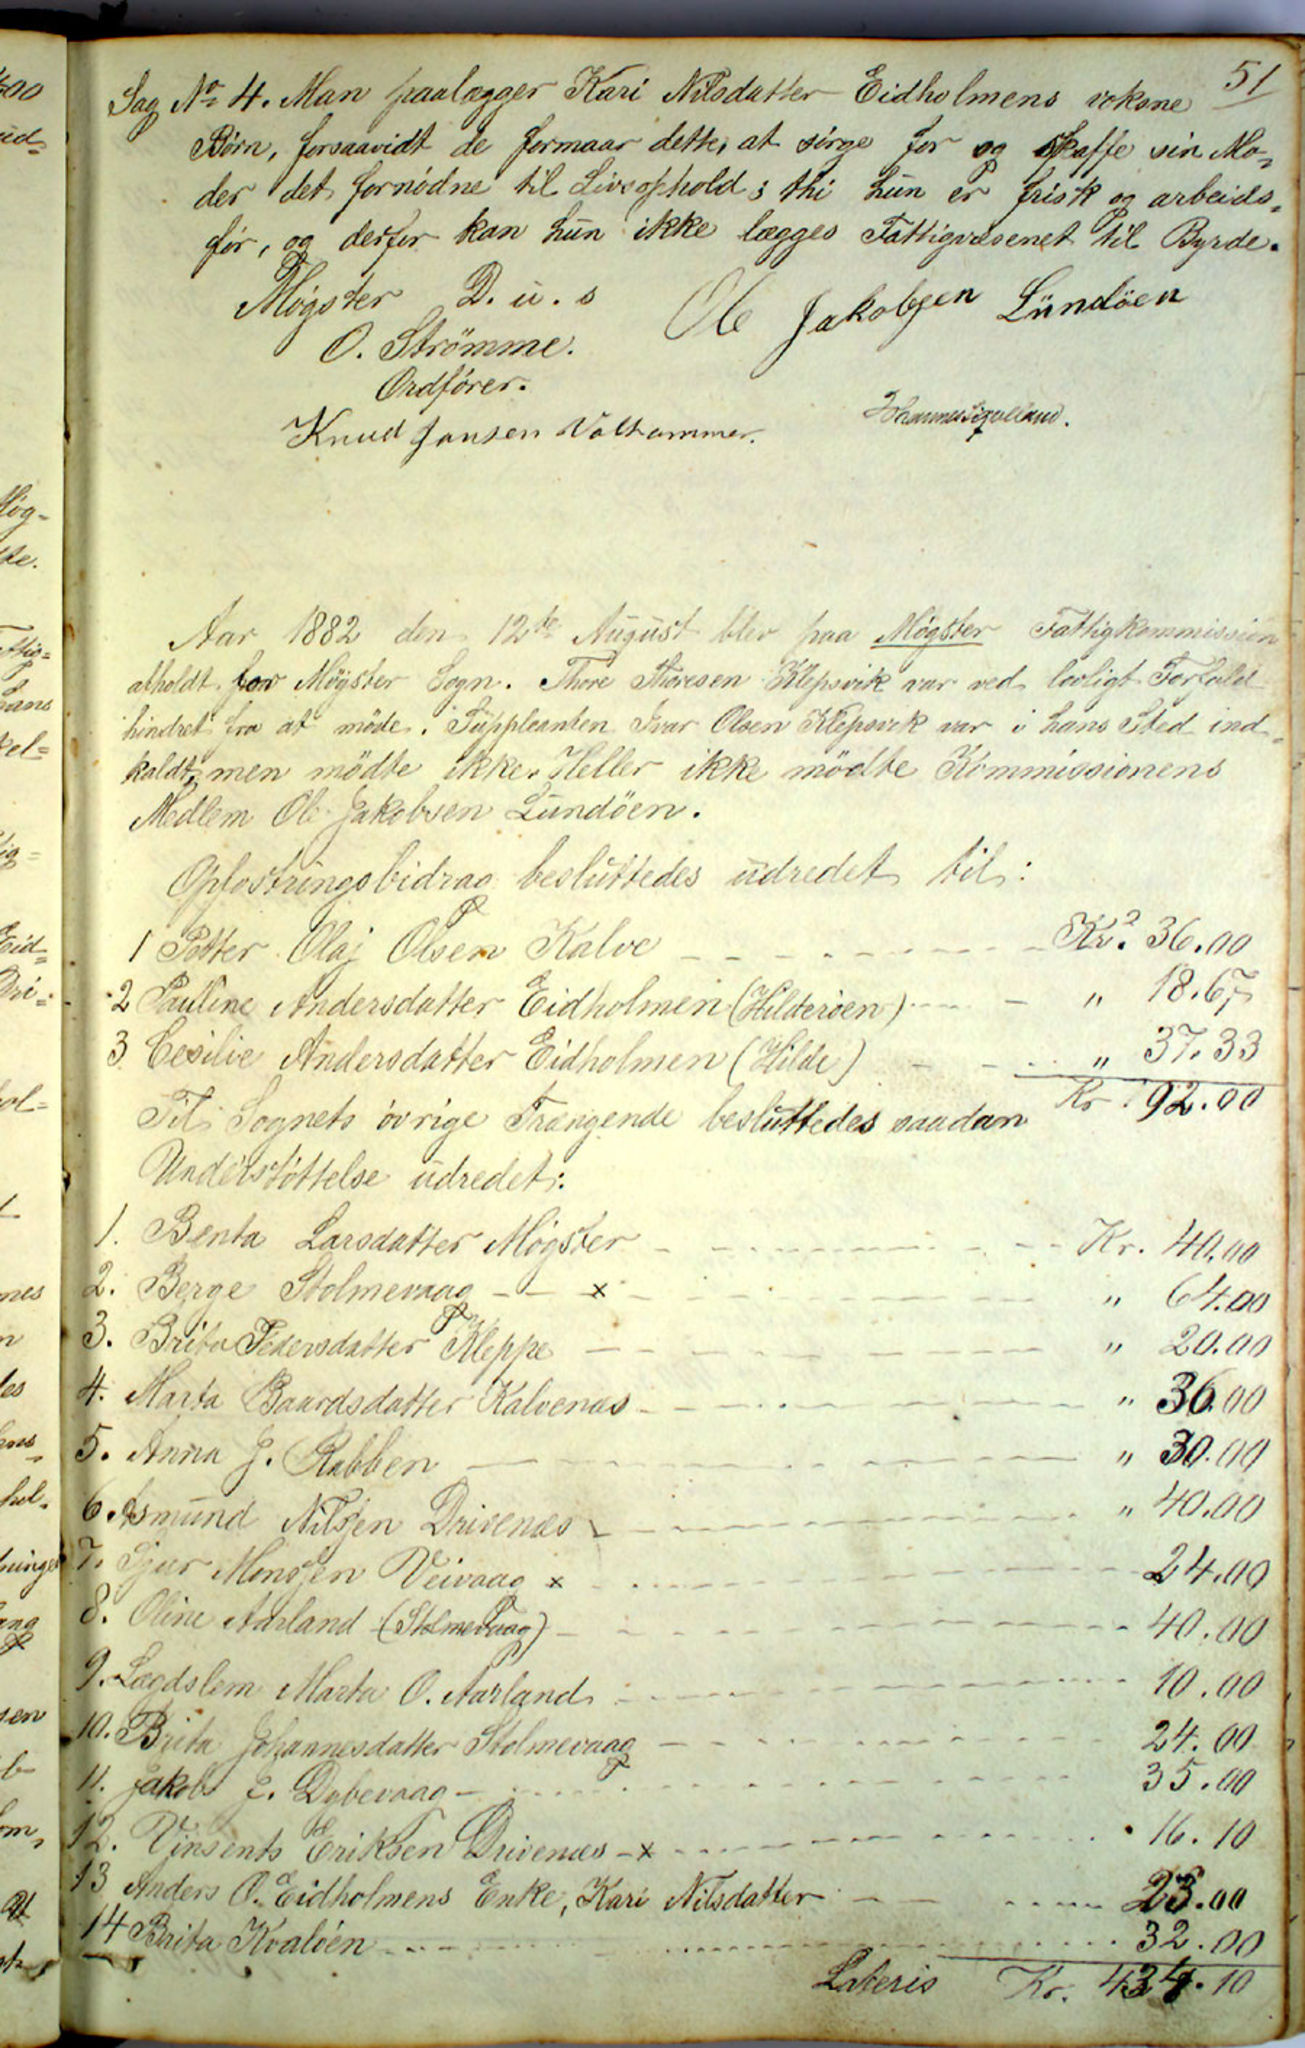 51
Sag No 4. Man paalægger Kari Nilsdatter Eidholmens voksne
Børn, forsaavidt de formaar dette, at sørge for og skaffe sin Mo-
der det fornødne til Livsophold; thi hun er frisk og arbeids-
før, og derfor kan hun ikke lægges Fattigvæsenet til Byrde.
Møgster D. u. s
O. Strömme.
Ordfører.
Ole Jakobsen Lundöen
Knud Jansen Valhammer.
Aar 1882 den 12te August blev paa Møgster Fattigkommission
afholdt for Møgster Sogn. Thore Thoresen Klepsvik var ved lovligt Forfald
hindret fra at møde. Suppleanten Ivar Olsen Klepsvik var i hans Sted ind-
kaldt, men mödte ikke. Heller ikke mödte Kommissionens
Medlem Ole Jakobsen Lundöen.
Opfostringsbidrag besluttedes udredet til:
1 Petter Olaj Olsen Kalve Kr. 36.00
2 Pauline Andersdatter Eidholmen (Hilderöen) " 18.67
3 Cesilie Andersdatter Eidholmen (Hilde) " 37.33
Kr. 92.00
Til Sognets övrige Trængende besluttedes saadan
Understöttelse udredet:
1. Benta Larsdatter Møgster Kr. 40.00
2. Berge Stolmevaag x " 64.00
3. Brita Pedersdatter Kleppe " 20.00
4. Marta Baardsdatter Kalvenæs " 36.00
5. Anna J. Rabben " 30.00
6. Asmund Nilsen Drivenæs " 40.00
7. Sjur Monsen Veivaag x 24.00
8. Oline Aarland (Stolmevaag) 40.00
9. Lægdslem Marta O. Aarland 10.00
10. Brita Johannesdatter Stolmevaag 24.00
11. Jakob J. Dybevaag 35.00
12. Vinsents Eriksen Drivenæs x 16.10
13 Anders O. Eidholmens Enke, Kari Nilsdatter 23.00
14 Brita Kvalöen 32.00
Lateris Kr. 434.10